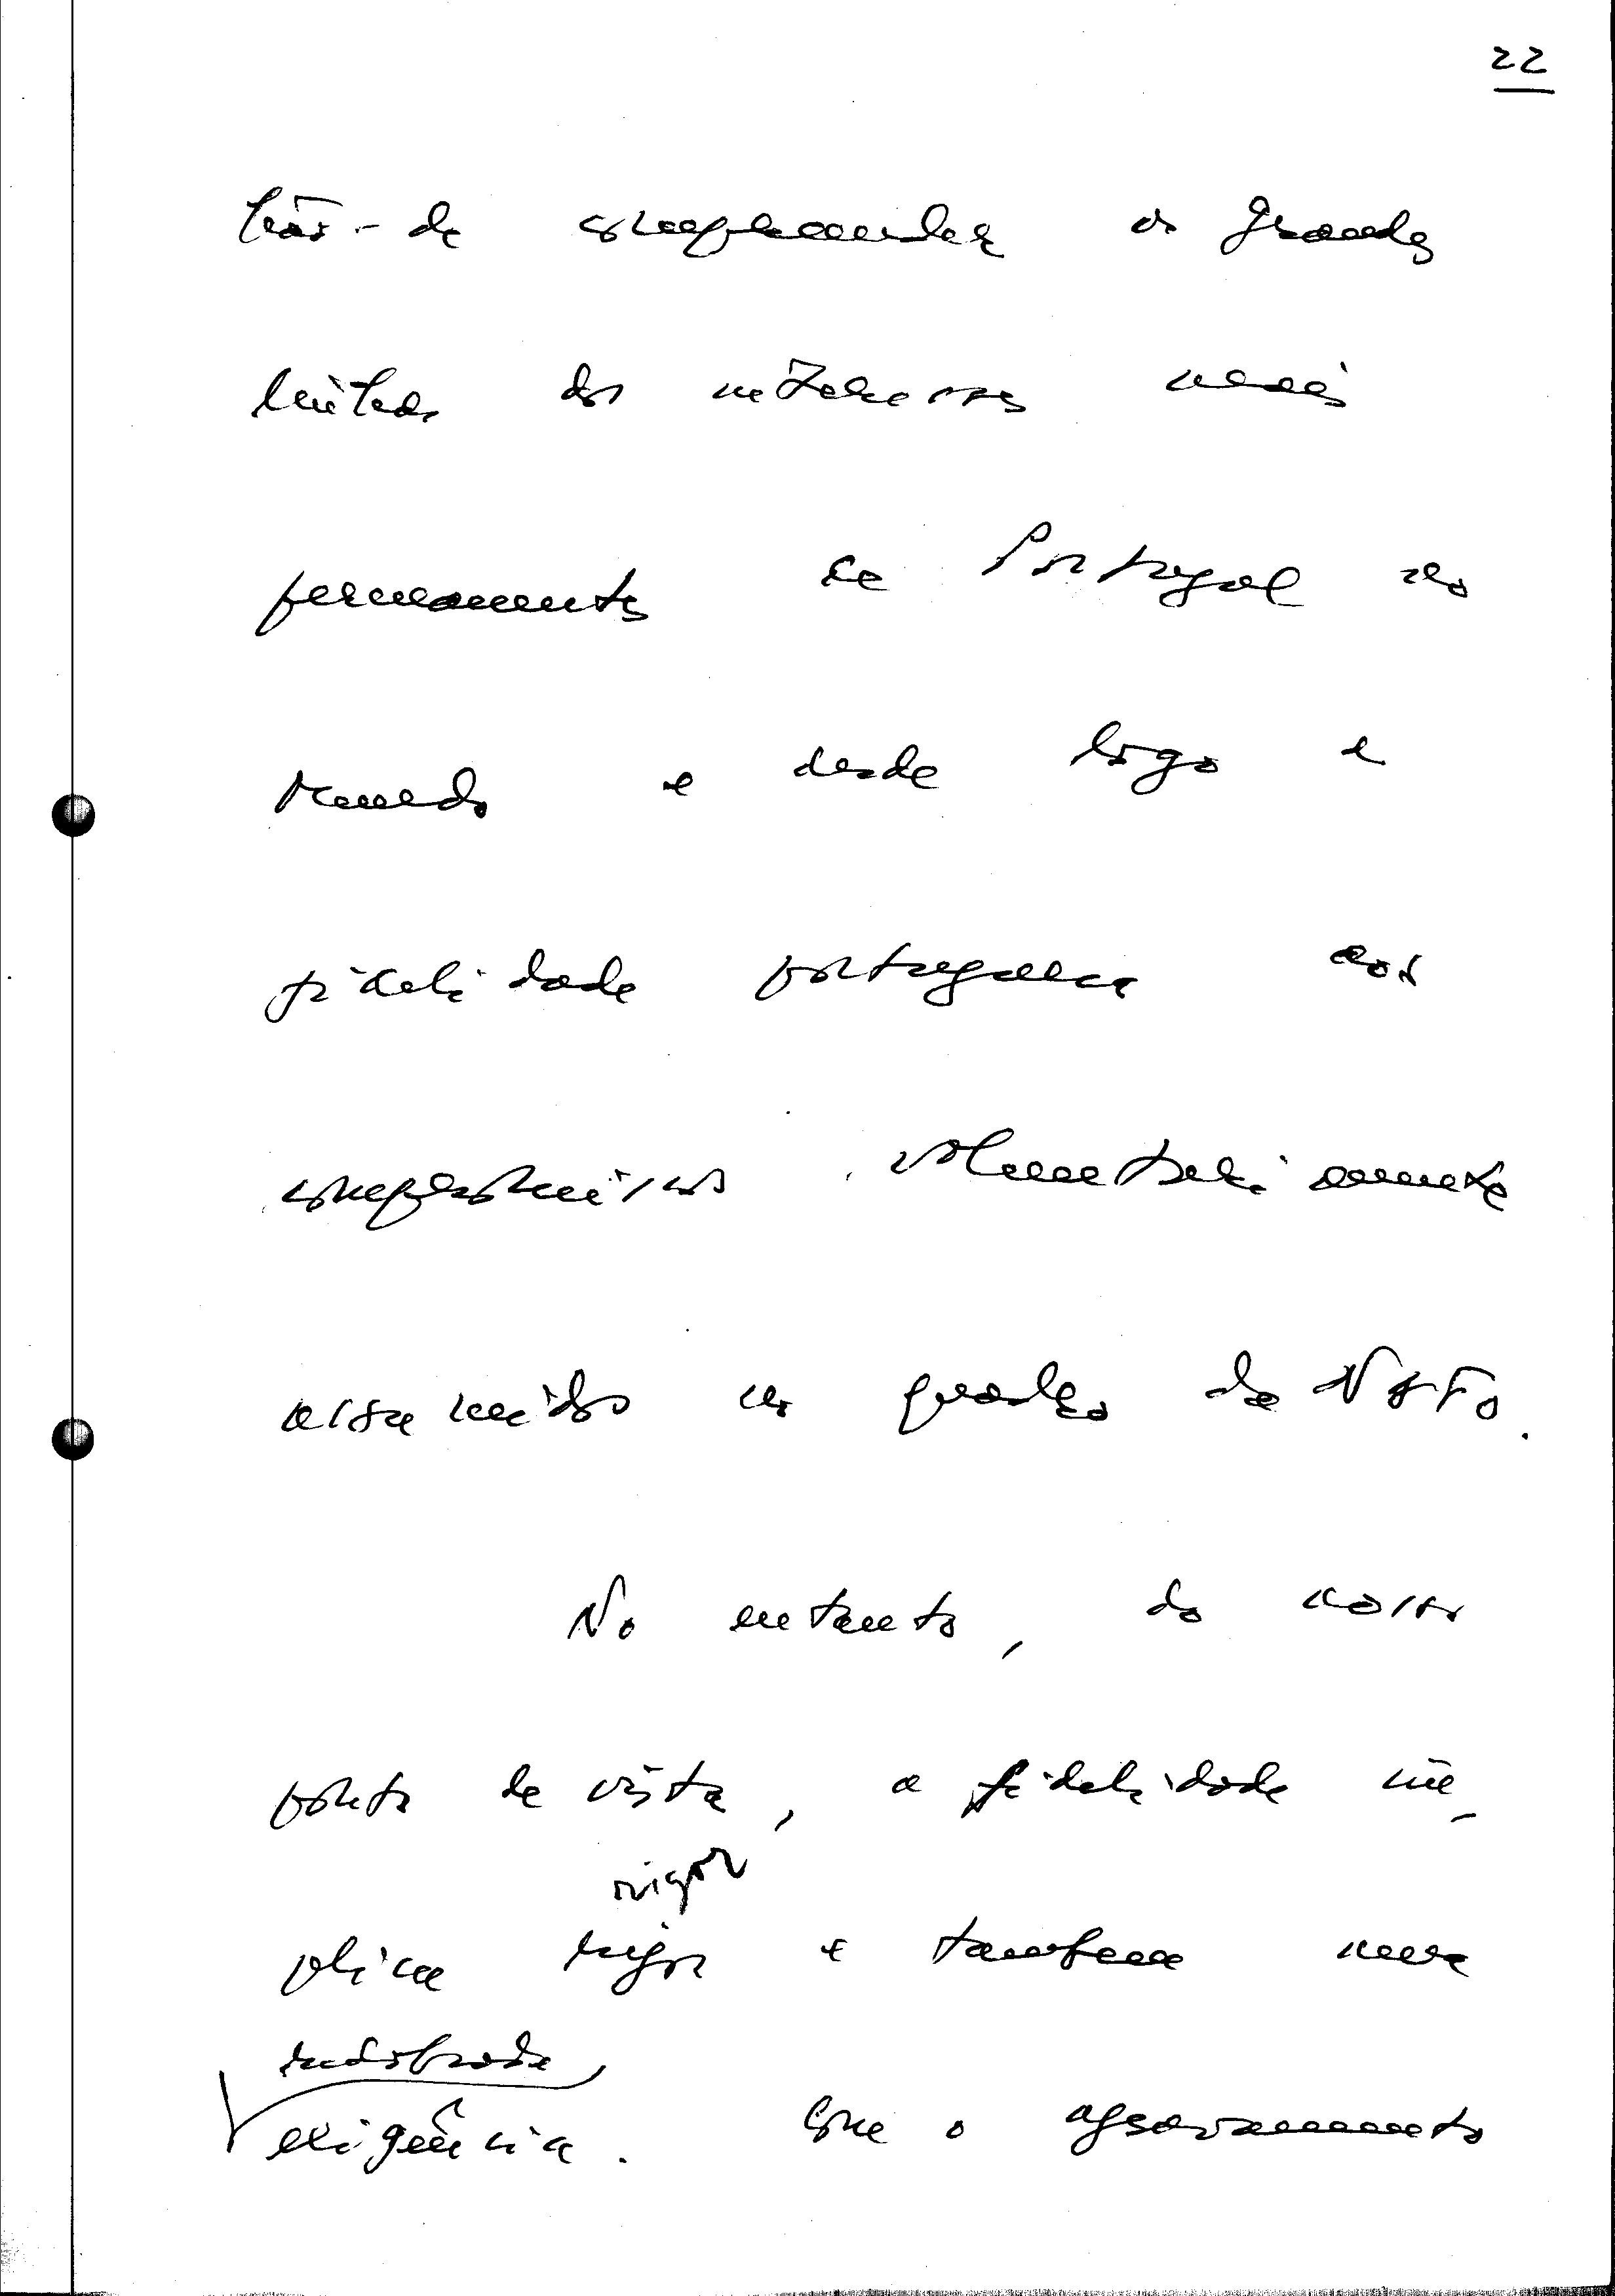 22
terão-de compreender as grandes
linhas dos interesses mais
permanentes de Portugal no
Mundo e desde logo a
fidelidade portuguesa aos
compromissos voluntariamente
assumidos no quadro da NATO.
No entanto, do nosso
ponto de vista, a fidelidade im_
rigor
plica rigor e também uma
redobrada
exigência. Com o agravamento